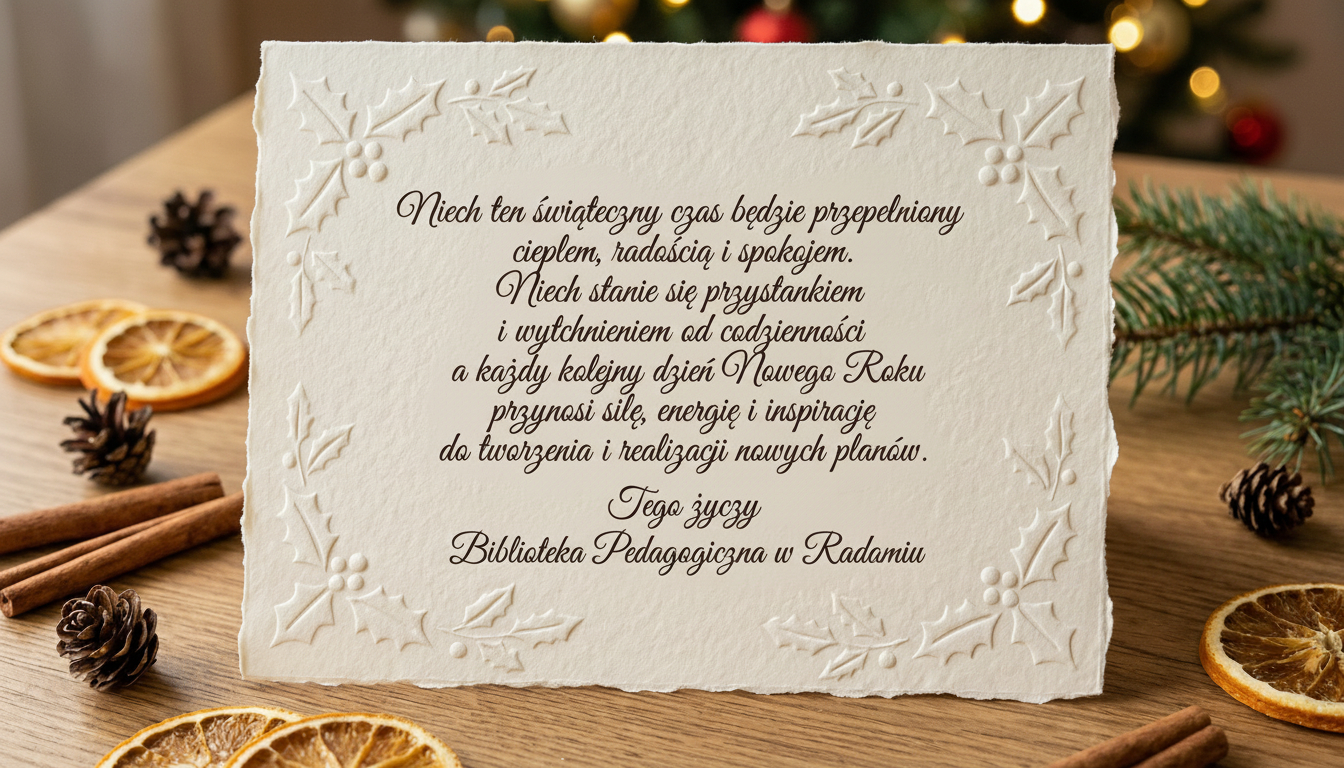 Niech ten świąteczny czas będzie przepełniony
ciepłem, radością i spokojem.
Niech stanie się przystankiem
i wytchnieniem od codzienności
a każdy kolejny dzień Nowego Roku
przynosi siłę, energię i inspirację
do tworzenia i realizacji nowych planów.
Tego życzy
Biblioteka Pedagogiczna w Radomiu